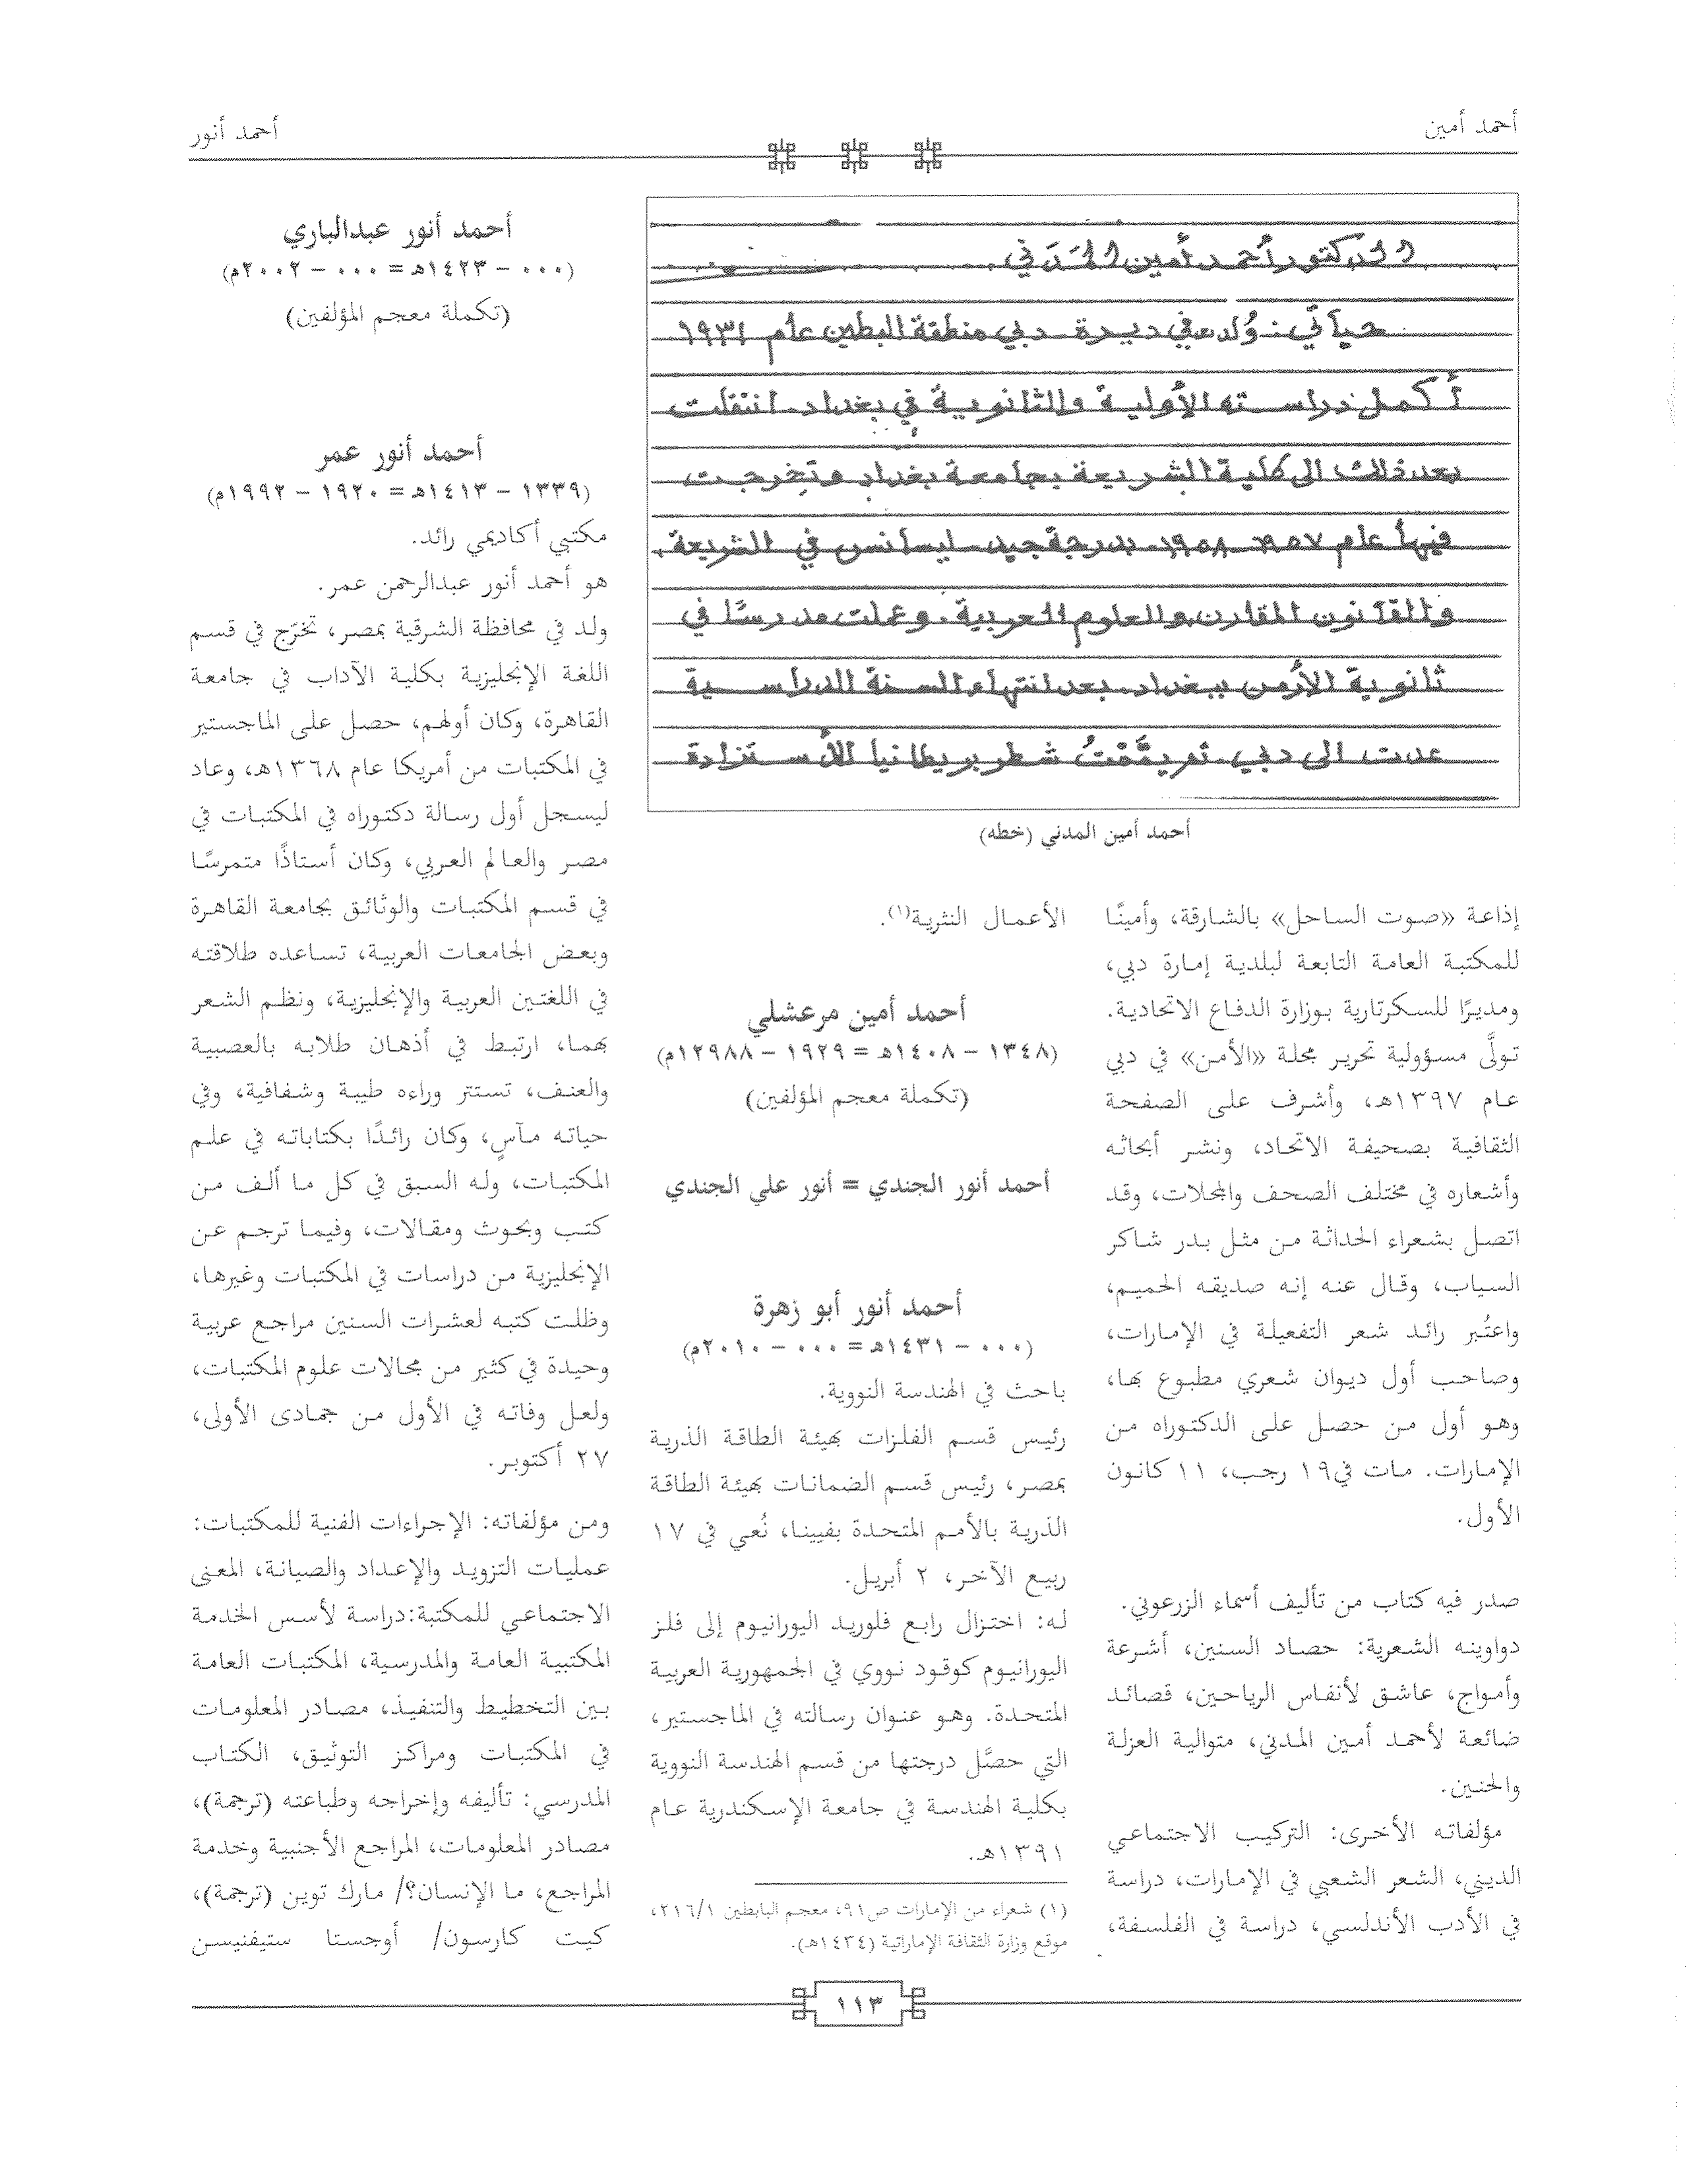 أحمد أمين
أحمد أنور
الدكتور أحمد أمين المدني
حياتي: وُلد في ديرة دبي منطقة البطين عام ١٩٣١
أكمل دراسته الأولية والثانوية في بغداد. انتقلت
بعد ذلك الى كلية الشريعة بجامعة بغداد وتخرجت
فيها عام ١٩٥٧ ١٩٥٨ بدرجة جيد ليسانس في الشريعة
والقانون المقارن والعلوم العربية. وعملت مدرسًا في
ثانوية الأرمن ببغداد. بعد انتهاء السنة الدراسية
عدت الى دبي. ثم يمَّمْتُ شطر بريطانيا للأستزادة
أحمد أمين المدني (خطه)
إذاعة «صوت الساحل» بالشارقة، وأمينًا
للمكتبة العامة التابعة لبلدية إمارة دبي،
ومديرًا للسكرتارية بوزارة الدفاع الاتحادية.
تولَّى مسؤولية تحرير مجلة «الأمن» في دبي
عام ١٣٩٧هـ، وأشرف على الصفحة
الثقافية بصحيفة الاتحاد، ونشر أبحاثه
وأشعاره في مختلف الصحف والمجلات، وقد
اتصل بشعراء الحداثة من مثل بدر شاكر
السياب، وقال عنه إنه صديقه الحميم،
واعتُبر رائد شعر التفعيلة في الإمارات،
وصاحب أول ديوان شعري مطبوع بها،
وهو أول من حصل على الدكتوراه من
الإمارات. مات في١٩ رجب، ١١ كانون
الأول.
صدر فيه كتاب من تأليف أسماء الزرعوني.
دواوينه الشعرية: حصاد السنين، أشرعة
وأمواج، عاشق لأنفاس الرياحين، قصائد
ضائعة لأحمد أمين المدني، متوالية العزلة
والحنين.
مؤلفاته الأخرى: التركيب الاجتماعي
الديني، الشعر الشعبي في الإمارات، دراسة
في الأدب الأندلسي، دراسة في الفلسفة،
الأعمال النثرية(١).
أحمد أمين مرعشلي
(١٣٤٨ – ١٤٠٨هـ = ١٩٢٩ – ١٢٩٨٨م)
(تكملة معجم المؤلفين)
أحمد أنور الجندي = أنور علي الجندي
أحمد أنور أبو زهرة
(٠٠٠ – ١٤٣١هـ = ٠٠٠ – ٢٠١٠م)
باحث في الهندسة النووية.
رئيس قسم الفلزات بهيئة الطاقة الذرية
بمصر، رئيس قسم الضمانات بهيئة الطاقة
الذرية بالأمم المتحدة بفيينا، نُعي في ١٧
ربيع الآخر، ٢ أبريل.
له: اختزال رابع فلوريد اليورانيوم إلى فلز
اليورانيوم كوقود نووي في الجمهورية العربية
المتحدة. وهو عنوان رسالته في الماجستير،
التي حصَّل درجتها من قسم الهندسة النووية
بكلية الهندسة في جامعة الإسكندرية عام
١٣٩١هـ.
(١) شعراء من الإمارات ص٩١، معجم البابطين ٢١٦/١،
موقع وزارة الثقافة الإماراتية (١٤٣٤هـ).
أحمد أنور عبدالباري
(٠٠٠ – ١٤٢٣هـ = ٠٠٠ – ٢٠٠٢م)
(تكملة معجم المؤلفين)
أحمد أنور عمر
(١٣٣٩ – ١٤١٣هـ = ١٩٢٠ – ١٩٩٢م)
مكتبي أكاديمي رائد.
هو أحمد أنور عبدالرحمن عمر.
ولد في محافظة الشرقية بمصر، تخرّج في قسم
اللغة الإنجليزية بكلية الآداب في جامعة
القاهرة، وكان أولهم، حصل على الماجستير
في المكتبات من أمريكا عام ١٣٦٨هـ، وعاد
ليسجل أول رسالة دكتوراه في المكتبات في
مصر والعالم العربي، وكان أستاذًا متمرسًا
في قسم المكتبات والوثائق بجامعة القاهرة
وبعض الجامعات العربية، تساعده طلاقته
في اللغتين العربية والإنجليزية، ونظم الشعر
بهما، ارتبط في أذهان طلابه بالعصبية
والعنف، تستتر وراءه طيبة وشفافية، وفي
حياته مآسٍ، وكان رائدًا بكتاباته في علم
المكتبات، وله السبق في كل ما ألف من
كتب وبحوث ومقالات، وفيما ترجم عن
الإنجليزية من دراسات في المكتبات وغيرها،
وظلت كتبه لعشرات السنين مراجع عربية
وحيدة في كثير من مجالات علوم المكتبات،
ولعل وفاته في الأول من جمادى الأولى،
٢٧ أكتوبر.
ومن مؤلفاته: الإجراءات الفنية للمكتبات:
عمليات التزويد والإعداد والصيانة، المعنى
الاجتماعي للمكتبة:دراسة لأسس الخدمة
المكتبية العامة والمدرسية، المكتبات العامة
بين التخطيط والتنفيذ، مصادر المعلومات
في المكتبات ومراكز التوثيق، الكتاب
المدرسي: تأليفه وإخراجه وطباعته (ترجمة)،
مصادر المعلومات، المراجع الأجنبية وخدمة
المراجع، ما الإنسان؟/ مارك توين (ترجمة)،
كيت كارسون/ أوجستا ستيفنيسن
١١٣